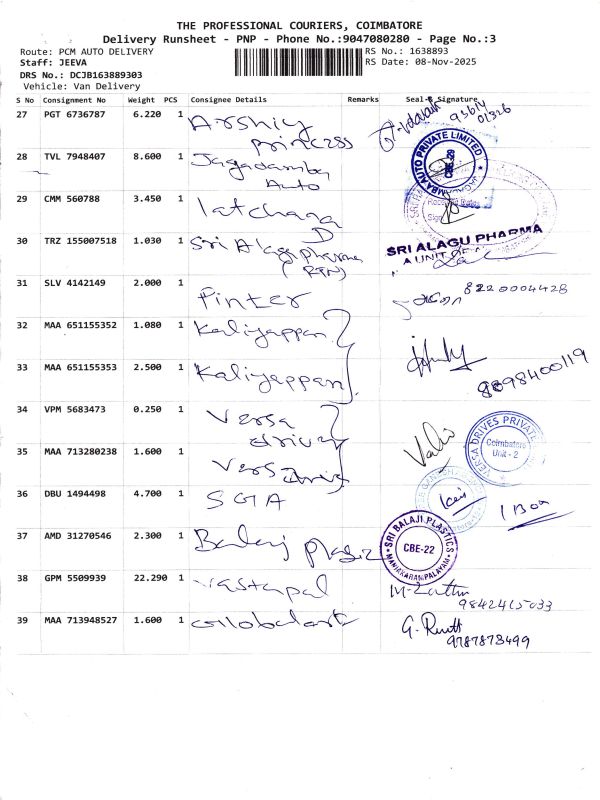 THE PROFESSIONAL COURIERS, COIMBATORE
Delivery Runsheet - PNP - Phone No.:9047080280 - Page No.:3
Route: PCM AUTO DELIVERY
RS No.: 1638893
Staff: JEEVA
RS Date: 08-Nov-2025
DRS No.: DCJB163889303
Vehicle: Van Delivery
S No Consignment No Weight PCS Consignee Details Remarks Seal & Signature
27 PGT 6736787 6.220 1 Arshiy princess
28 TVL 7948407 8.600 1 Jagadamba Auto
29 CMM 560788 3.450 1 latchana
30 TRZ 155007518 1.030 1 Sri Alagu pharma
SRI ALAGU PHARMA
A UNIT OF
31 SLV 4142149 2.000 1 Finter 8220004428
32 MAA 651155352 1.080 1 Kaliyappan
33 MAA 651155353 2.500 1 Kaliyappan 9098400119
34 VPM 5683473 0.250 1 Versa drives
VERSA DRIVES PRIVATE
Coimbatore
Unit - 2
35 MAA 713280238 1.600 1 Versa drives
36 DBU 1494498 4.700 1 SGA 1 Box
37 AMD 31270546 2.300 1 Balaji plastic
SRI BALAJI PLASTICS
CBE-22
MANIAKARAMPALAYAM
38 GPM 5509939 22.290 1 vastapal 9842465033
39 MAA 713948527 1.600 1 Globalart 9787873499